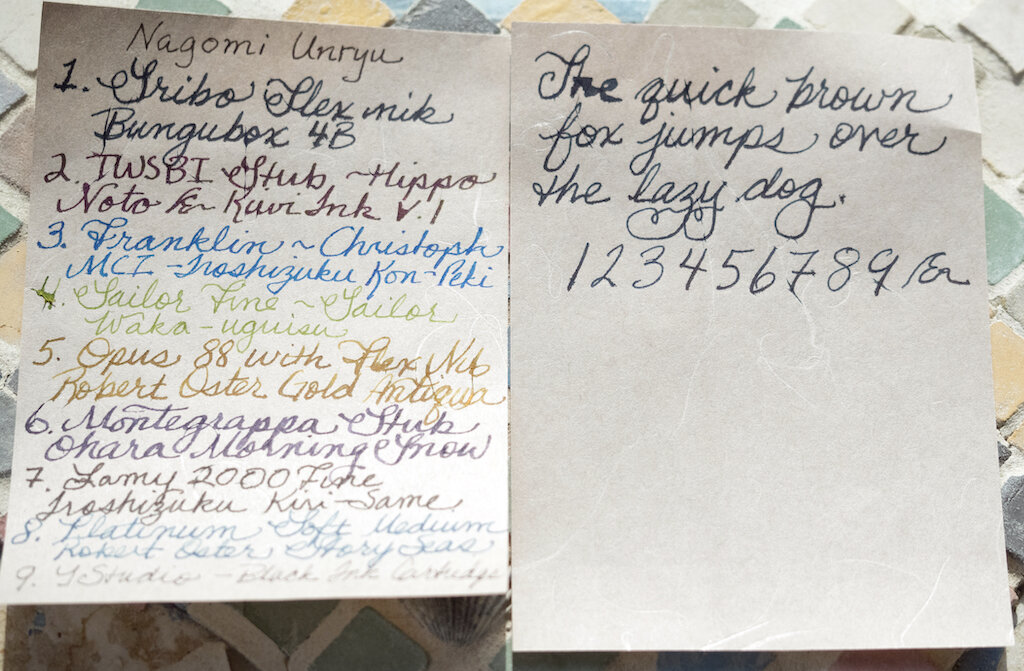 Nagomi Unryu
1. Gribo Flex nik
Bungubox 4B
2. TWSBI Stub ~ Hippo
Noto & Kuvi Ink v.1
3. Franklin ~ Christoph
MCI - Iroshizuku Kon-Peki
4. Sailor Fine ~ Sailor
Waka-uguisu
5. Opus 88 with Flex Nib
Robert Oster Gold Antiqua
6. Montegrappa Stub
Ohara Morning Snow
7. Lamy 2000 Fine
Iroshizuku Kiri-Same
8. Platinum Soft Medium
Robert Oster Story Seas
9. Y Studio - Black Ink Cartridge
The quick brown
fox jumps over
the lazy dog.
1 2 3 4 5 6 7 8 9 &